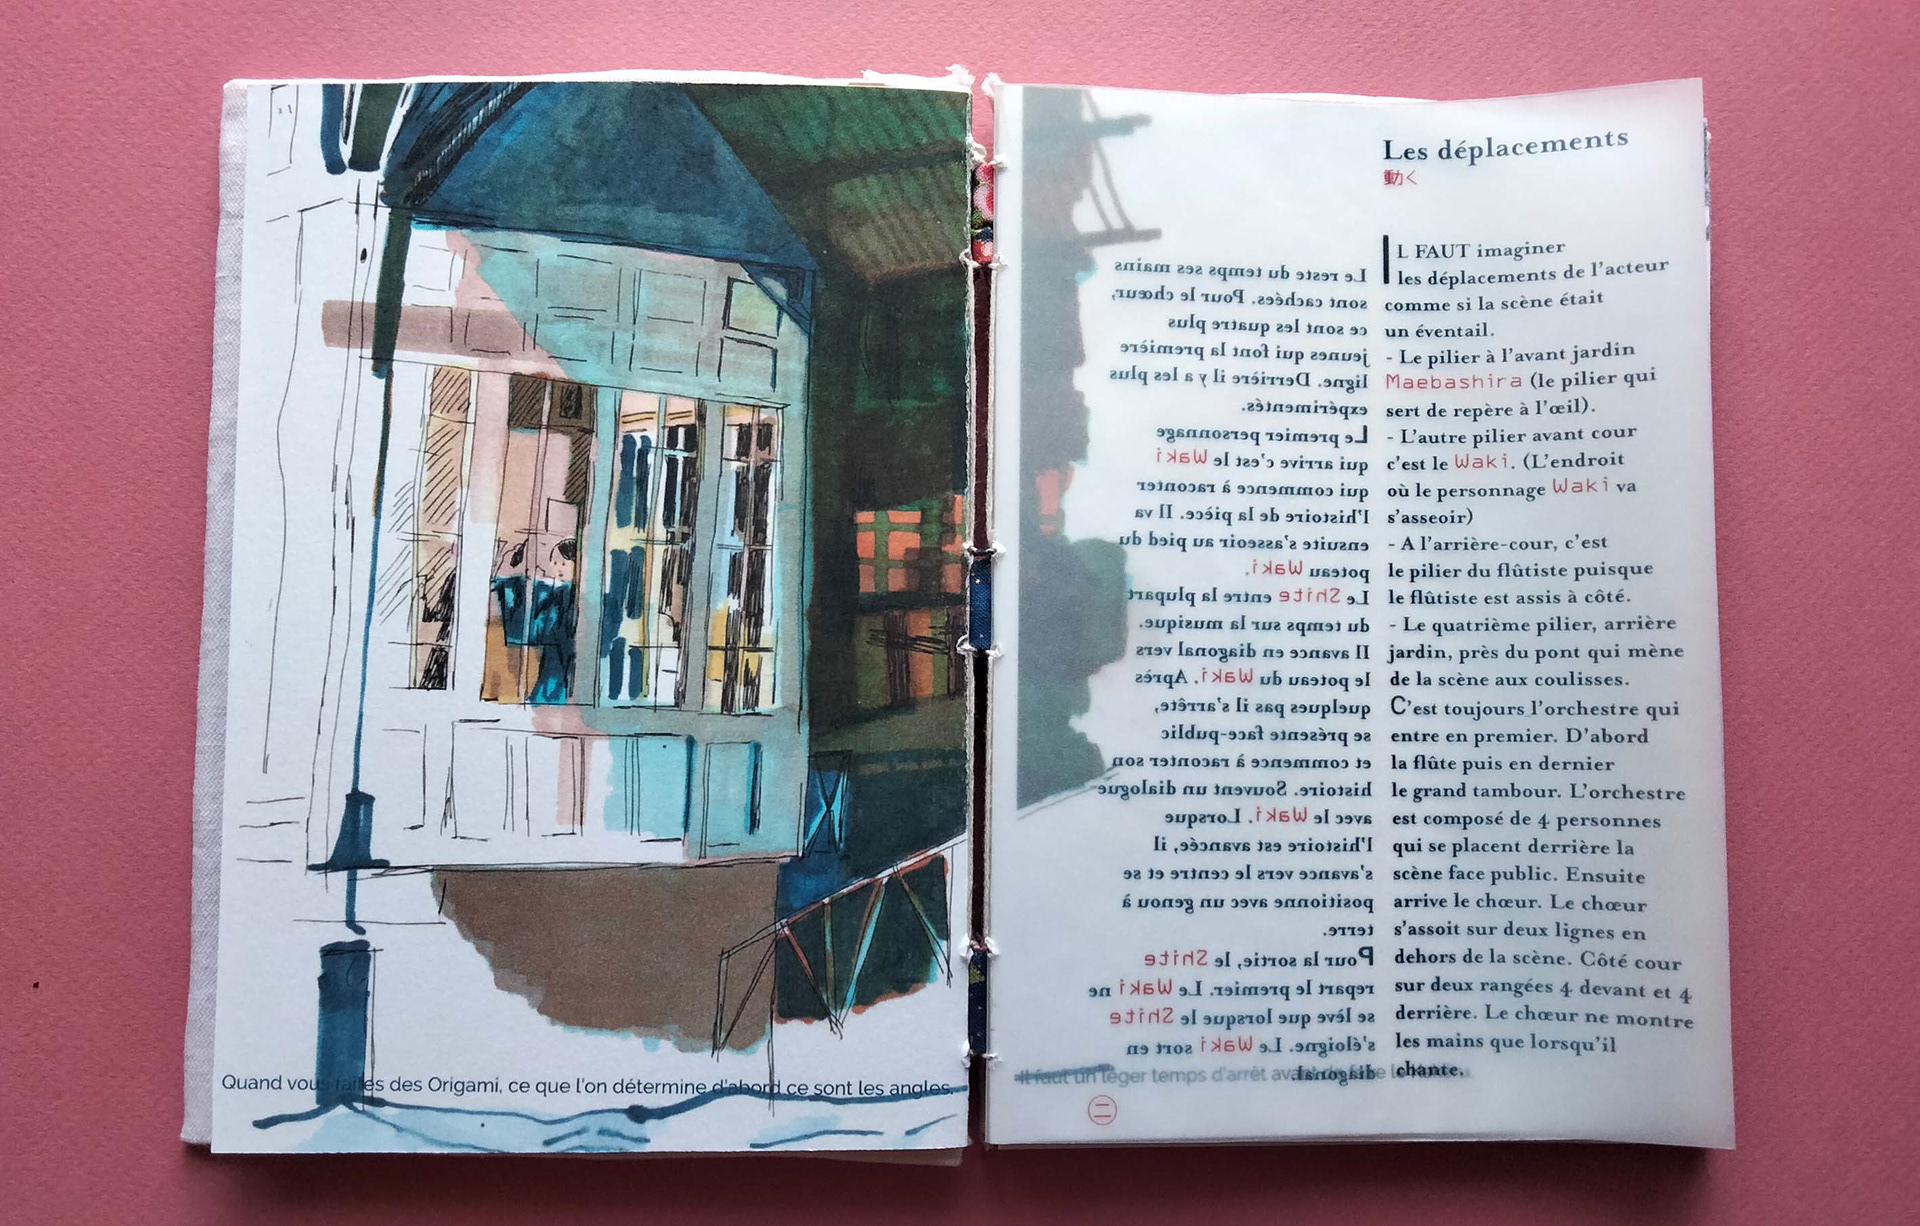 Quand vous faites des Origami, ce que l'on détermine d'abord ce sont les angles.
Les déplacements
動く
IL FAUT imaginer
les déplacements de l'acteur
comme si la scène était
un éventail.
- Le pilier à l'avant jardin
Maebashira (le pilier qui
sert de repère à l'œil).
- L'autre pilier avant cour
c'est le Waki. (L'endroit
où le personnage Waki va
s'asseoir)
- A l'arrière-cour, c'est
le pilier du flûtiste puisque
le flûtiste est assis à côté.
- Le quatrième pilier, arrière
jardin, près du pont qui mène
de la scène aux coulisses.
C'est toujours l'orchestre qui
entre en premier. D'abord
la flûte puis en dernier
le grand tambour. L'orchestre
est composé de 4 personnes
qui se placent derrière la
scène face public. Ensuite
arrive le chœur. Le chœur
s'assoit sur deux lignes en
dehors de la scène. Côté cour
sur deux rangées 4 devant et 4
derrière. Le chœur ne montre
les mains que lorsqu'il
chante.
Le reste du temps ses mains
sont cachées. Pour le chœur,
ce sont les quatre plus
jeunes qui font la première
ligne. Derrière il y a les plus
expérimentés.
Le premier personnage
qui arrive c'est le Waki
qui commence à raconter
l'histoire de la pièce. Il va
ensuite s'asseoir au pied du
poteau Waki.
Le Shite entre la plupart
du temps sur la musique.
Il avance en diagonal vers
le poteau du Waki. Après
quelques pas il s'arrête,
se présente face-public
et commence à raconter son
histoire. Souvent un dialogue
avec le Waki. Lorsque
l'histoire est avancée, il
s'avance vers le centre et se
positionne avec un genou à
terre.
Pour la sortie, le Shite
repart le premier. Le Waki ne
se lève que lorsque le Shite
s'éloigne. Le Waki sort en
diagonal.
Il faut un léger temps d'arrêt avant de faire le
二